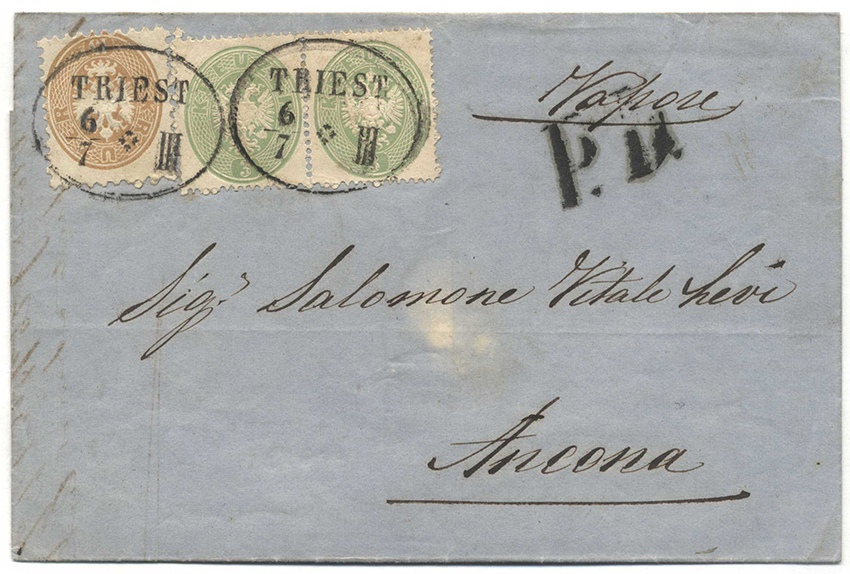 TRIEST
6
7
III
TRIEST
6
7
III
Vapore
P. D.
Sigr Salomone Vitale Levi
Ancona